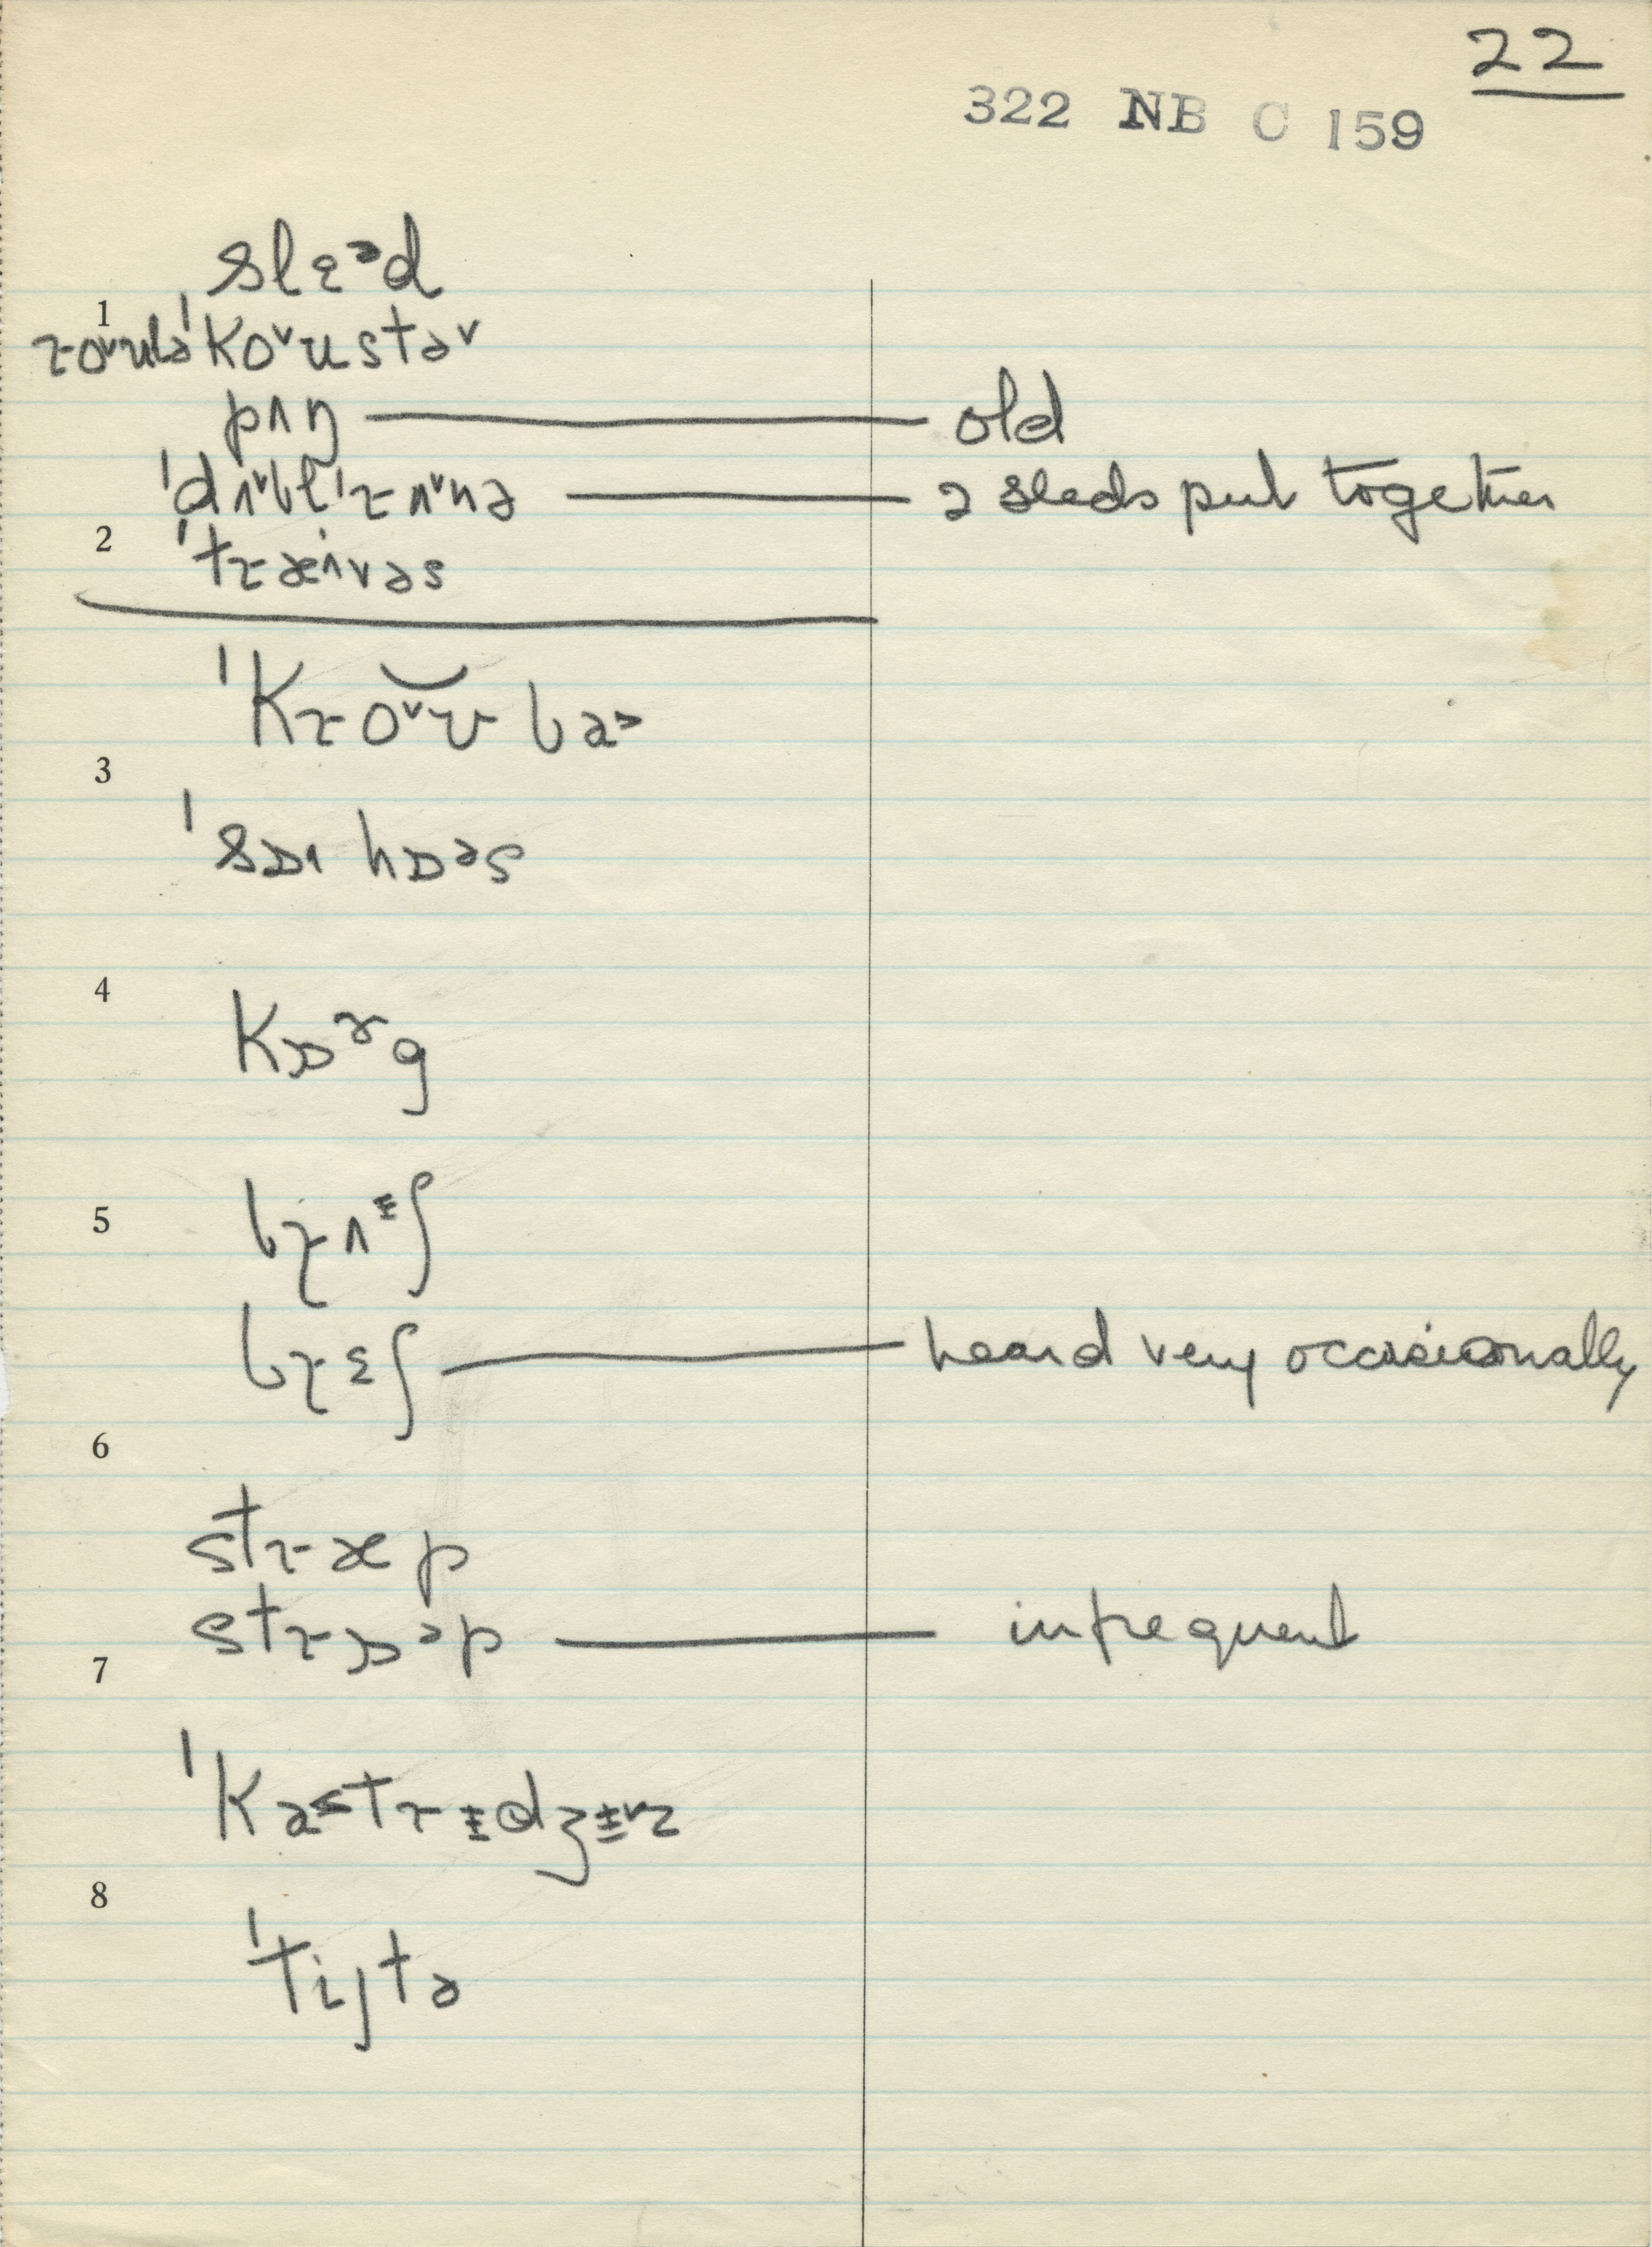 22
322 NB C 159
slɛᵊd
1
ɹoᵛuləˈkoᵛustəᵛ
pʌŋ — old
ˈdʌᵛblˈɹʌᵛnə — 2 sleds put together
2 ˈtɹæˑ^vəs
ˈkɹoᵛʊbaɚ
3
ˈsɒ˞hɒəs
4
kɒᵊ˞g
5 bɹʌᶤʃ
bɹɛʃ — heard very occasionally
6
stɹæp
stɹɒᵊp — infrequent
7
ˈkɑ˂tɹɨdʒɨᵛz
8
ˈtiʃtə